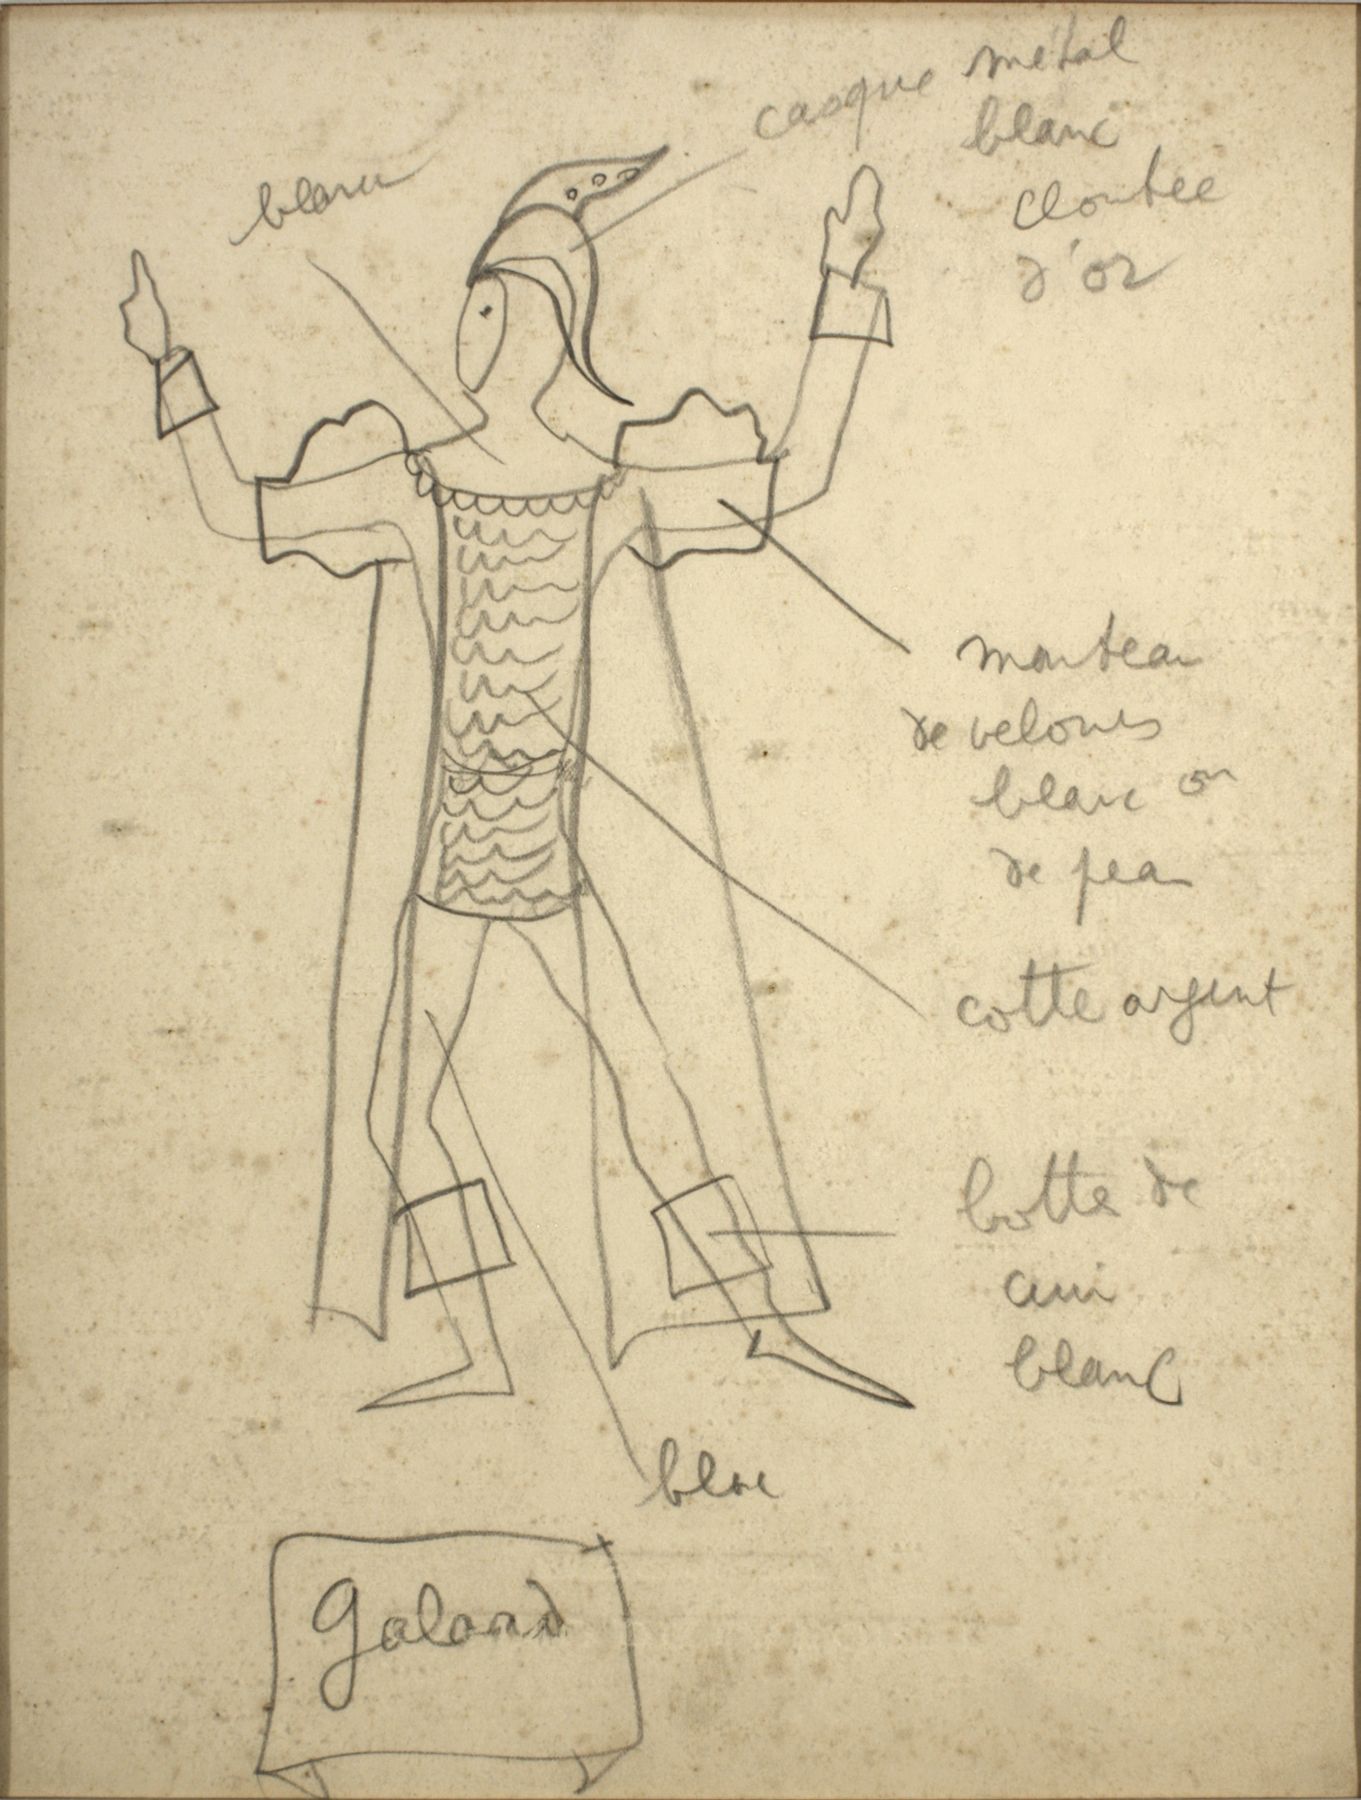 casque métal
blanc
cloutée
d'or
blanc
manteau
de velours
blanc ou
de peau
cotte argent
botte de
cuir
blanc
Galaad